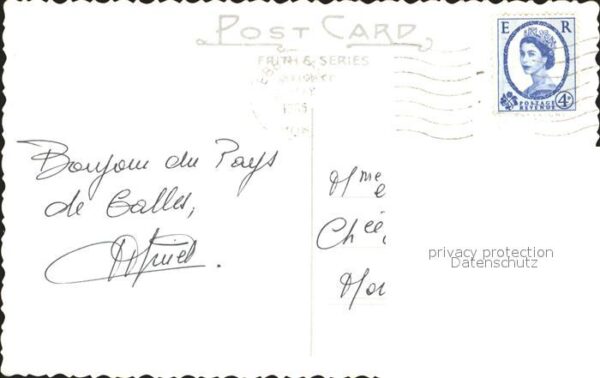 POST CARD
FRITH & SERIES
E R
POSTAGE
REVENUE
4D
Bonjour du Pays
de Galles,
Mme
privacy protection
Datenschutz